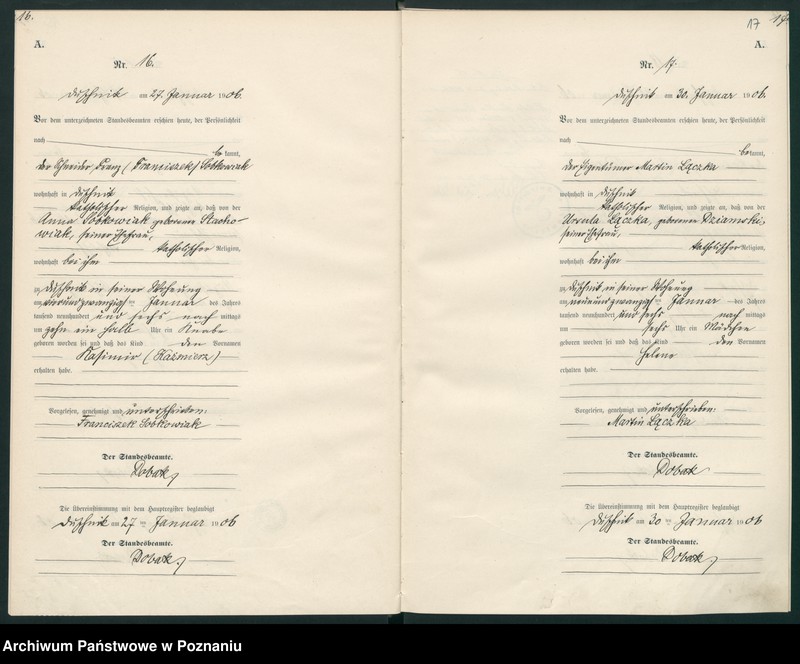 16.
A.
Nr. 16.
Duschnik am 27. Januar 1906.
Vor dem unterzeichneten Standesbeamten erschien heute, der Persönlichkeit
nach
bekannt,
der Schneider Franz (Franciszek) Sobkowiak
wohnhaft in Duschnik
katholischer Religion, und zeigte an, daß von der
Anna Sobkowiak geborenen
wiak, seiner Ehefrau,
katholischer Religion,
wohnhaft bei ihm
zu Duschnik in seiner Wohnung
am vierundzwanzigsten Januar des Jahres
tausend neunhundert und sechs nach mittags
um zehn ein halb Uhr ein Knabe
geboren worden sei und daß das Kind den Vornamen
Kasimir (Kaźmierz)
erhalten habe.
Vorgelesen, genehmigt und unterschrieben:
Franciszek Sobkowiak
Der Standesbeamte.
Dobak
Die Übereinstimmung mit dem Hauptregister beglaubigt
Duschnik am 27 ten Januar 1906
Der Standesbeamte.
Dobak
17 17.
A.
Nr. 17.
Duschnik am 30. Januar 1906.
Vor dem unterzeichneten Standesbeamten erschien heute, der Persönlichkeit
nach
bekannt,
der Eigentümer Martin Łączka
wohnhaft in Duschnik
katholischer Religion, und zeigte an, daß von der
Ursula Łączka, geborenen Dziamski,
seiner Ehefrau,
katholischer Religion,
wohnhaft bei ihm
zu Duschnik in seiner Wohnung
am neunundzwanzigsten Januar des Jahres
tausend neunhundert und sechs nach mittags
um sechs Uhr ein Mädchen
geboren worden sei und daß das Kind den Vornamen
Helene
erhalten habe.
Vorgelesen, genehmigt und unterschrieben:
Martin Łączka
Der Standesbeamte.
Dobak
Die Übereinstimmung mit dem Hauptregister beglaubigt
Duschnik am 30 ten Januar 1906
Der Standesbeamte.
Dobak
Archiwum Państwowe w Poznaniu